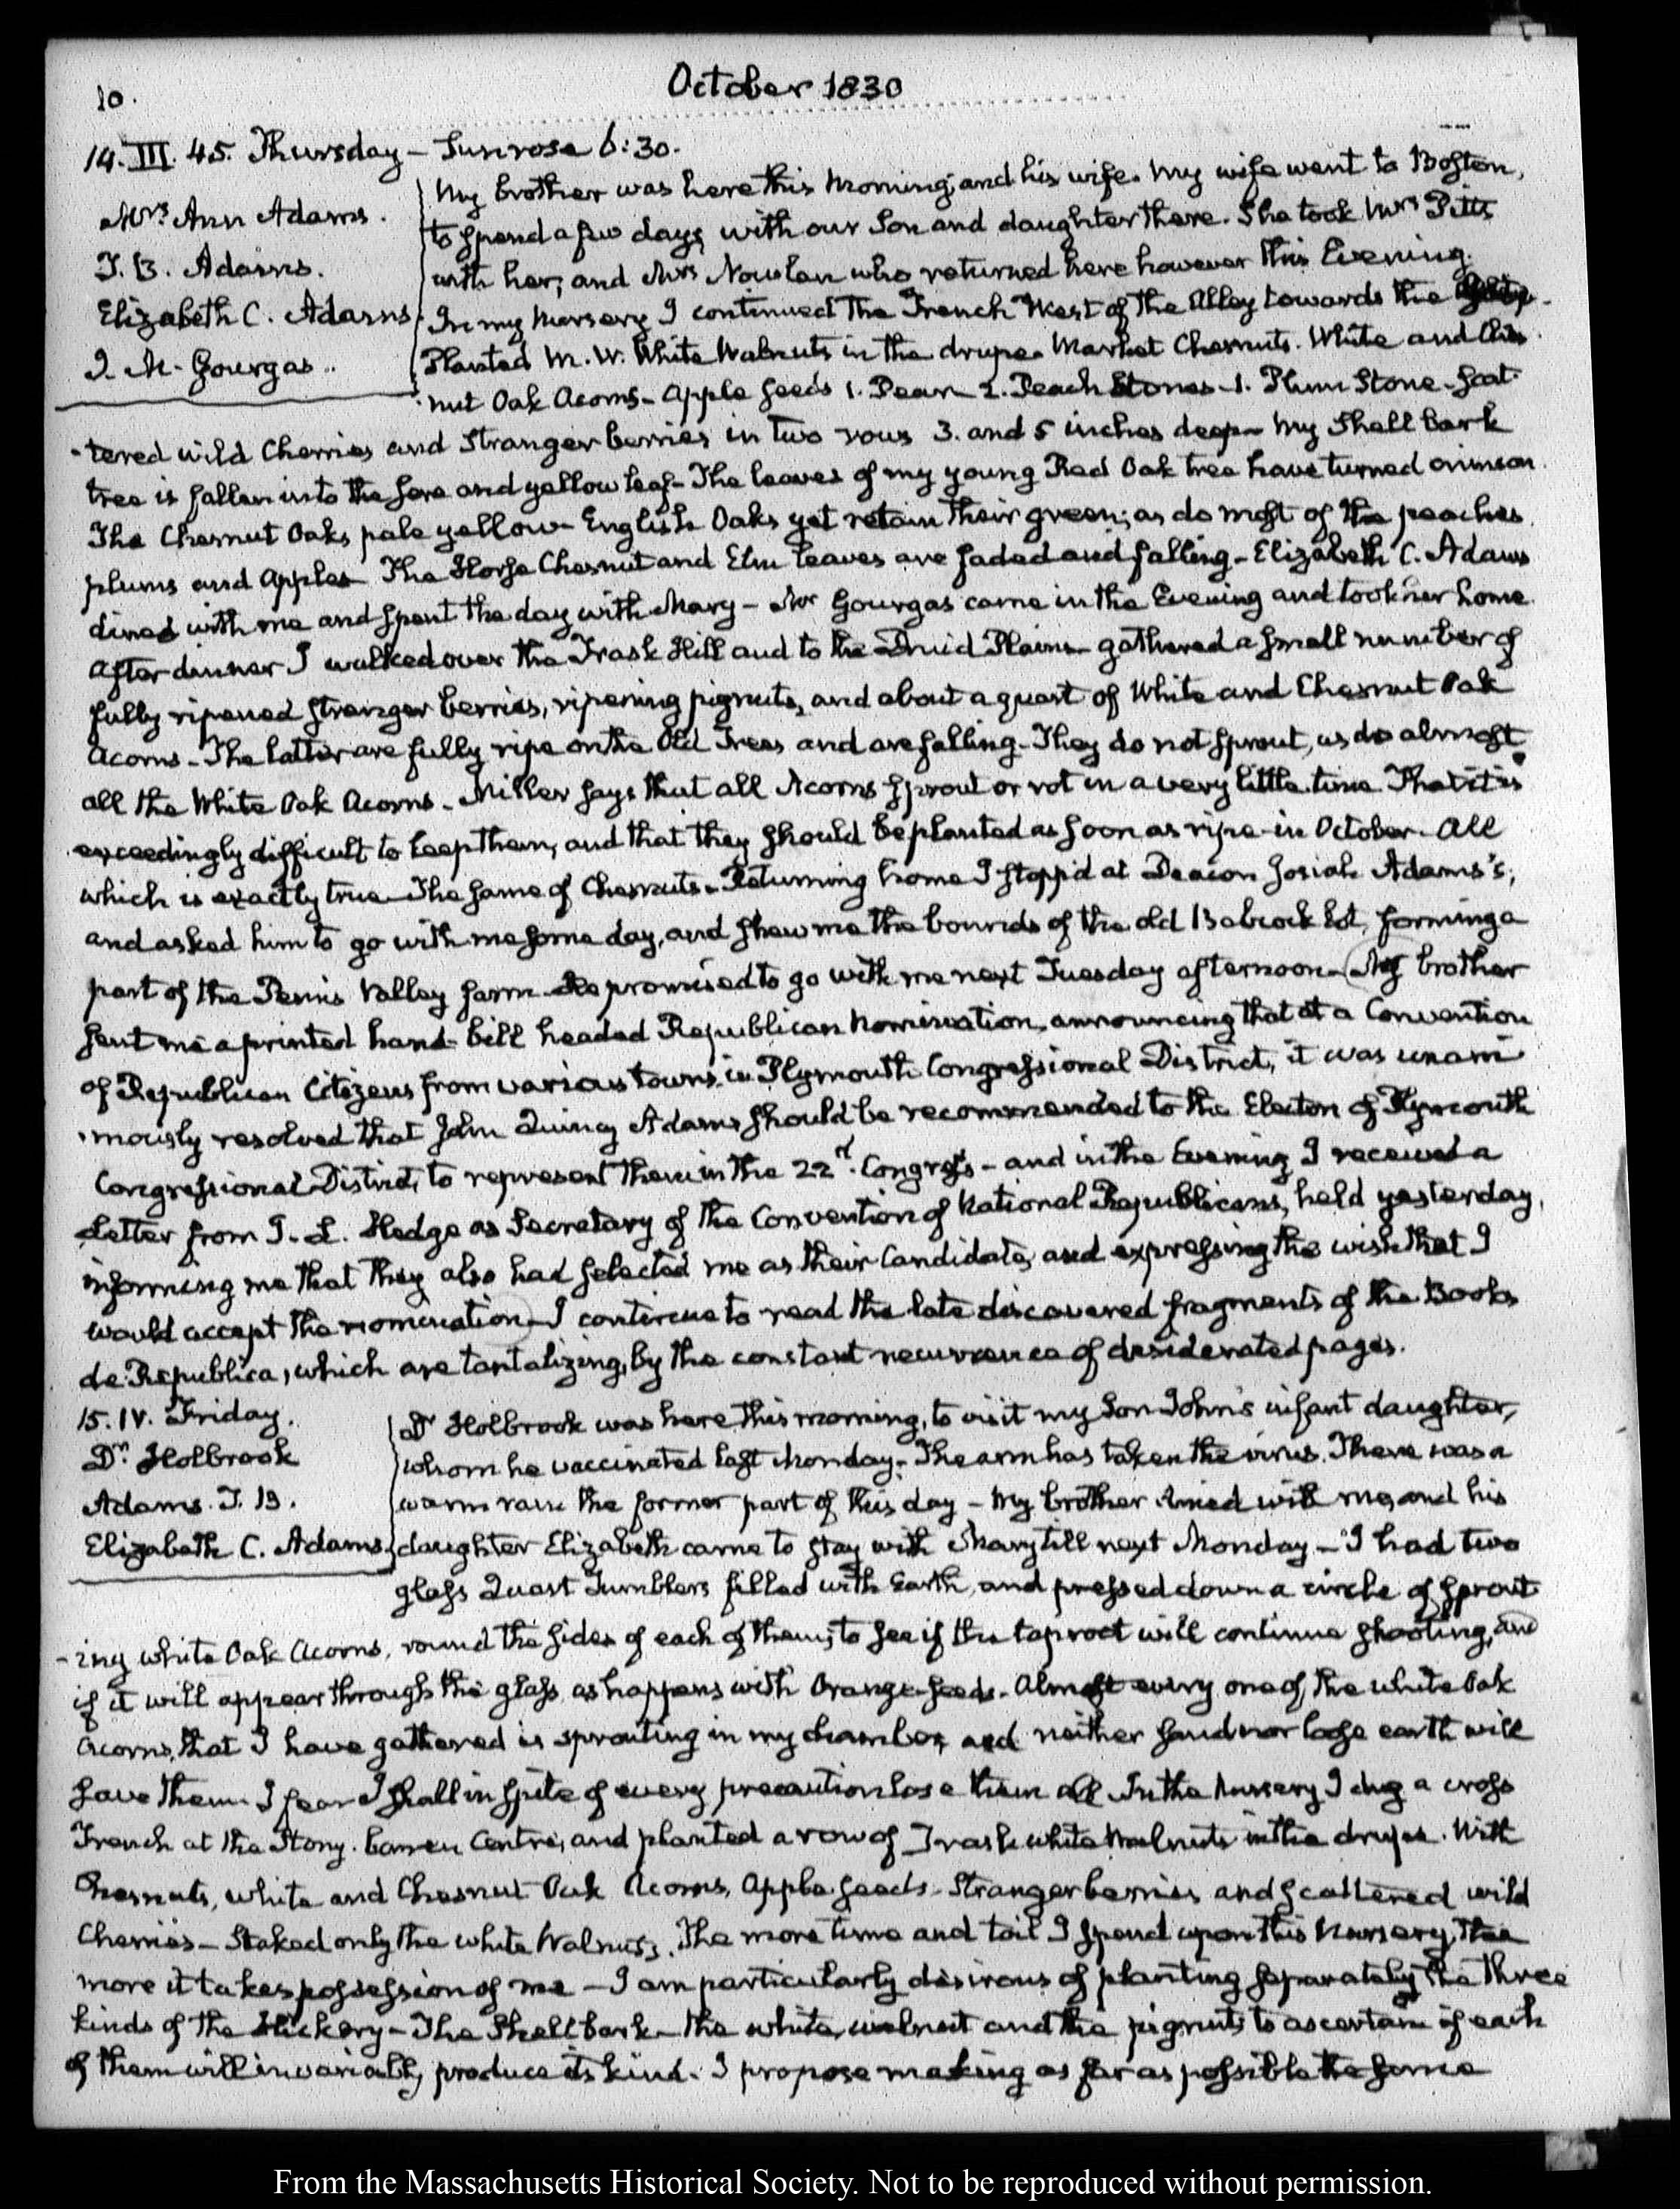 10.
October 1830
14. III. 45. Thursday — Sunrose 6:30.
Mrs. Ann Adams.
T. B. Adams.
Elizabeth C. Adams
J. M. Gourgas..
My brother was here this Morning; and his wife. My wife went to Boston,
to spend a few days with our Son and daughter there. She took Mrs Pitts
with her; and Mrs Nowlan who returned here however this Evening.
In my Nursery I continued the Trench West of the Alley towards the
Planted M. W. White Walnuts in the drupe. Market Chesnuts. White and Ches
nut Oak Acorns — Apple Seeds 1. Pear 2. Peach Stones — 1. Plum Stone — Scat
-tered wild Cherries and Stranger berries in two rows 3. and 5 inches deep — My Shellbark
tree is fallen into the sere and yellow leaf — The leaves of my young Red Oak tree have turned crimson.
The Chesnut Oaks pale yellow — English Oaks yet retain their green; as do most of the peaches,
plums and Apples. The Horse Chesnut and Elm leaves are faded and falling — Elizabeth C. Adams
dined with me and spent the day with Mary — Mr Gourgas came in the Evening and took her home.
After dinner I walked over the Trask Hill and to the Druid Plains — gathered a small number of
fully ripened stranger berries, ripening pignuts, and about a quart of White and Chesnut Oak
Acorns — The latter are fully ripe on the Old Trees and are falling — They do not sprout, as do almost
all the White Oak Acorns — Miller says that all Acorns sprout or rot in a very little time. That it is
exceedingly difficult to keep them, and that they should be planted as soon as ripe — in October. All
which is exactly true — The same of Chesnuts — Returning home I stopp'd at Deacon Josiah Adams's,
and asked him to go with me some day, and shew me the bounds of the old Babcock lot, forming a
part of the Penns Valley farm — He promised to go with me next Tuesday afternoon — My brother
sent me a printed hand-bill headed Republican Nomination, announcing that at a Convention
of Republican Citizens from various towns in Plymouth Congressional District, it was unani
-mously resolved that John Quincy Adams should be recommended to the Electors of Plymouth
Congressional District, to represent them in the 22d. Congress — and in the Evening I received a
Letter from I. L. Hedge as Secretary of the Convention of National Republicans, held yesterday,
informing me that they also had selected me as their Candidate, and expressing the wish that I
would accept the nomination — I continue to read the late discovered fragments of the Books
de Republica, which are tantalizing, by the constant recurrence of desiderated pages.
15. IV. Friday.
Dr. Holbrook
Adams. T. B.
Elizabeth C. Adams
Dr Holbrook was here this morning, to visit my Son John's infant daughter,
whom he vaccinated last Monday. The arm has taken the virus. There was a
warm rain the former part of this day — My brother dined with me, and his
daughter Elizabeth came to stay with Mary till next Monday — I had two
glass Quart Tumblers filled with Earth, and pressed down a circle of sprout
-ing white Oak Acorns, round the sides of each of them, to see if the taproot will continue shooting, and
if it will appear through the glass, as happens with Orange-seeds. Almost every one of the white Oak
Acorns, that I have gathered is sprouting in my chamber, and neither sand nor loose earth will
save them. I fear I shall in spite of every precaution lose them all. In the Nursery I dug a cross
Trench at the Stony barren Centre, and planted a row of Trask white Walnuts in the drupe. With
Chesnuts, white and Chesnut Oak Acorns, Apple seeds. Stranger berries and scattered wild
Cherries — Staked only the white Walnuts. The more time and toil I spend upon this Nursery, the
more it takes possession of me — I am particularly desirous of planting separately the three
kinds of the Hickory — The Shellbark — the white walnut and the pignut, to ascertain if each
of them will invariably produce its kind. I propose making as far as possible the same
From the Massachusetts Historical Society. Not to be reproduced without permission.